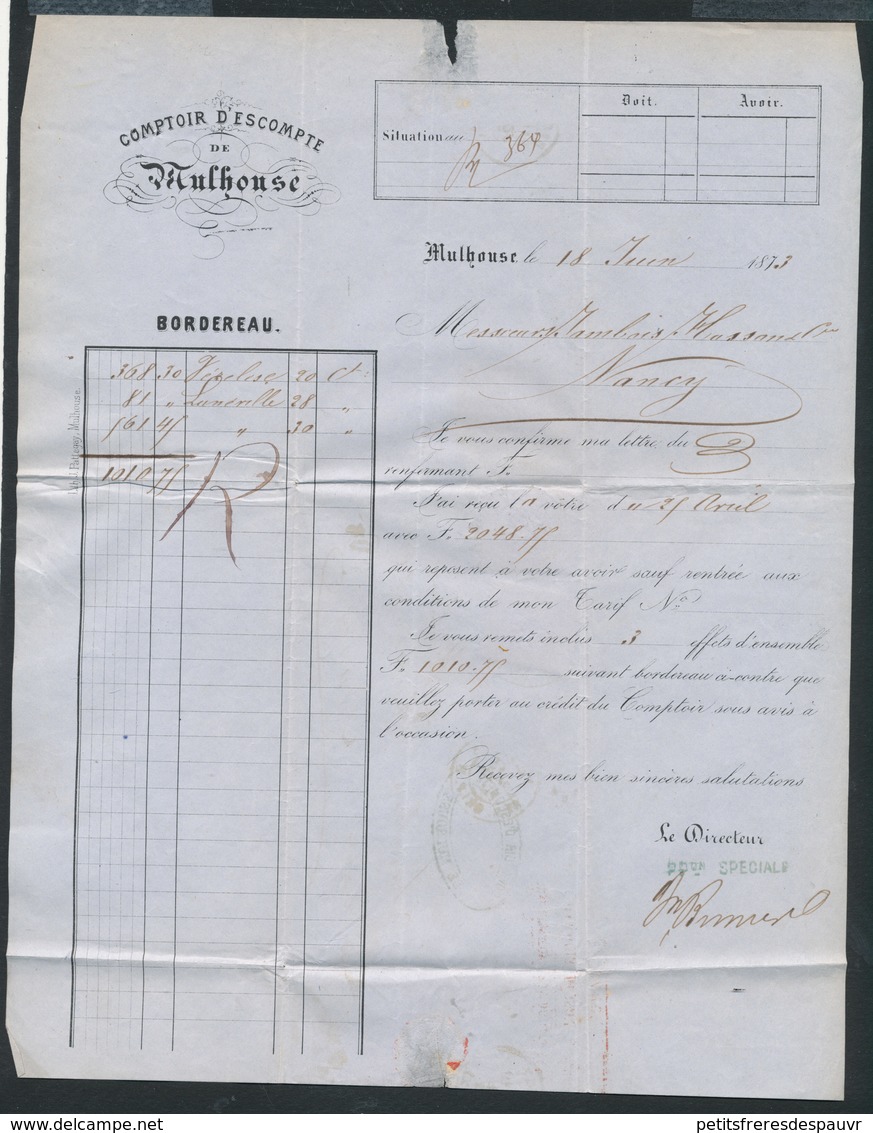 COMPTOIR D'ESCOMPTE
DE
Mulhouse
Situation au
364
Doit.
Avoir.
Mulhouse, le 18 Juin 1873
Messieurs
Nancy
BORDEREAU.
368 30 Vézelise 20 Ct
81 " Lunéville 28 "
561 45 " 30 "
1010.75
Mulhouse.
Je vous confirme ma lettre du
renfermant F.
J'ai reçu la vôtre du 25 Avril
avec F. 2048.75
qui reposent à votre avoir sauf rentrée aux
conditions de mon Tarif No.
Je vous remets inclus 3 effets d'ensemble
F. 1010.75 suivant bordereau ci-contre que
veuillez porter au crédit du Comptoir sous avis à
l'occasion.
Recevez mes bien sincères salutations
Le Directeur
SPECIALE
petitsfreresdespauvr